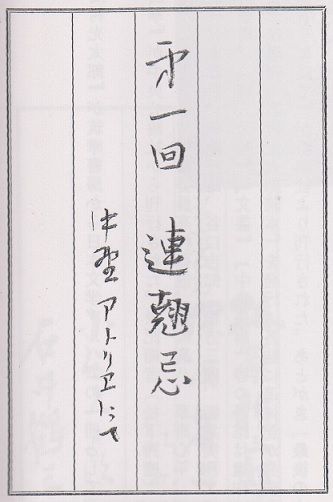 才一回 連翹忌
中野アトリエにて